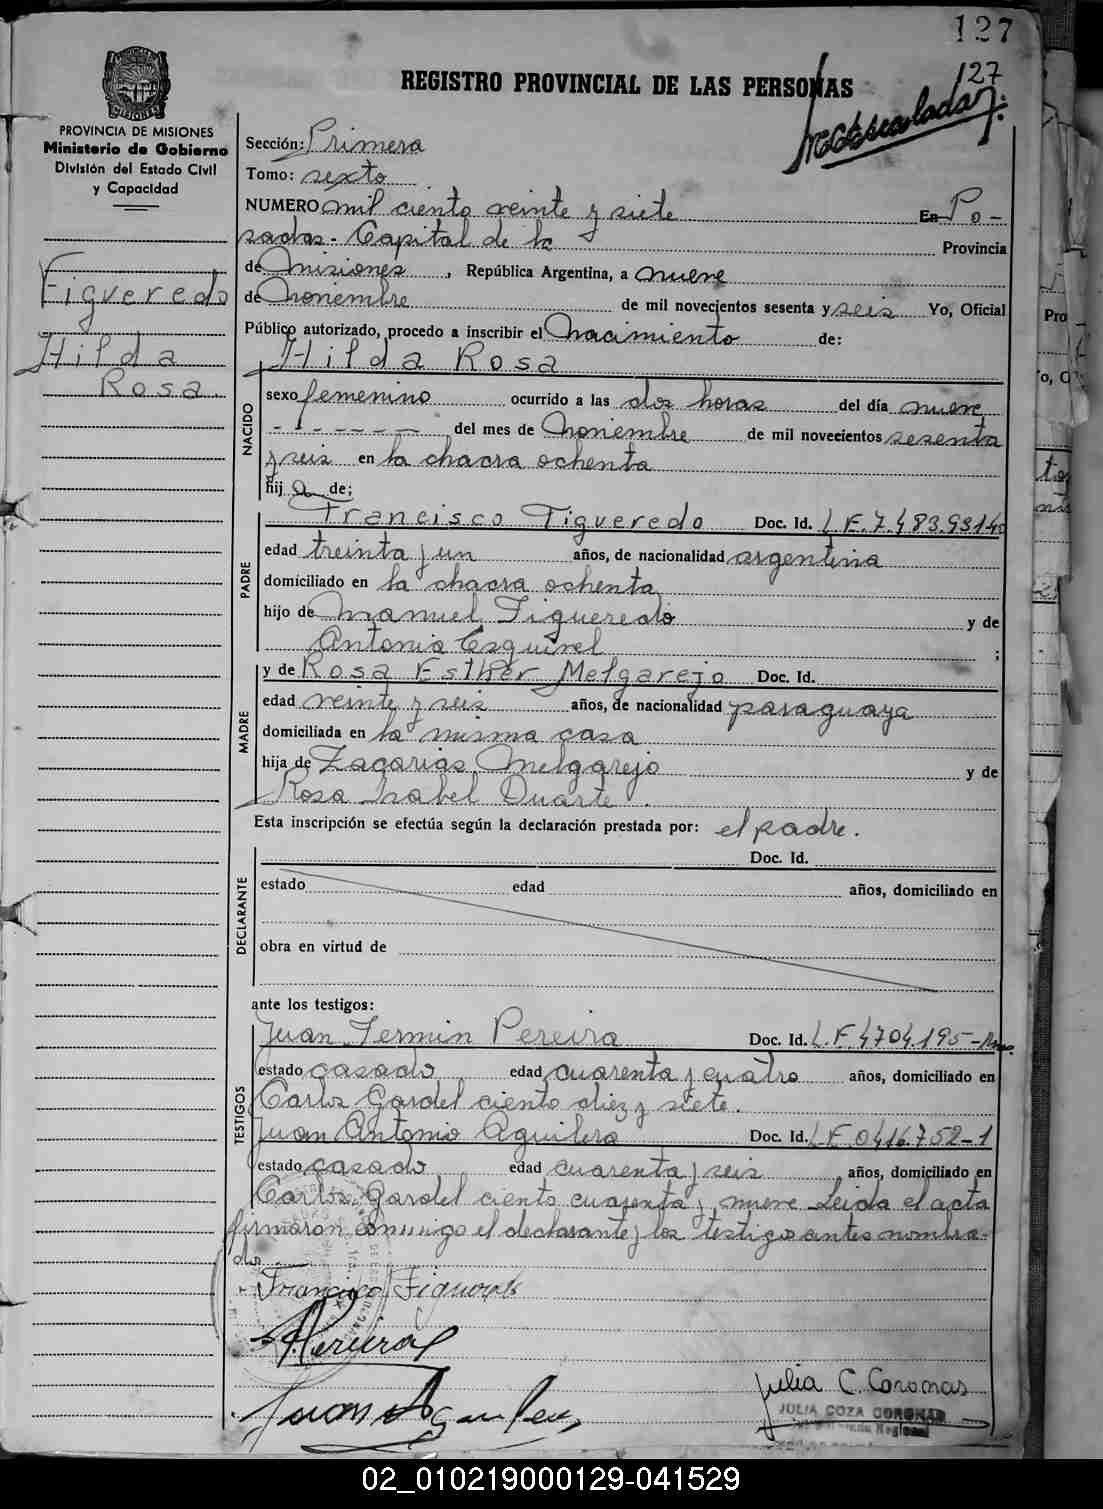 127
127
REGISTRO PROVINCIAL DE LAS PERSONAS
PROVINCIA DE MISIONES
Ministerio de Gobierno
División del Estado Civil
y Capacidad
Figueredo
Hilda
Rosa.
Sección: Primera
Tomo: sexto
NUMERO mil ciento veinte y siete En Po-
sadas. Capital de la Provincia
de Misiones, República Argentina, a nueve
de Noviembre de mil novecientos sesenta y seis Yo, Oficial
Público autorizado, procedo a inscribir el Nacimiento de:
Hilda Rosa
NACIDO
sexo femenino ocurrido a las dos horas del día nueve
- - - - - - - del mes de Noviembre de mil novecientos sesenta
y seis en la chacra ochenta
hija de:
PADRE
Francisco Figueredo Doc. Id. L.E.7.483.931
edad treinta y un años, de nacionalidad argentina
domiciliado en la chacra ochenta
hijo de Manuel Figueredo y de
Antonia Esquivel ;
MADRE
y de Rosa Esther Melgarejo Doc. Id.
edad veinte y seis años, de nacionalidad paraguaya
domiciliada en la misma casa
hija de Zacarias Melgarejo y de
Rosa Isabel Duarte.
Esta inscripción se efectúa según la declaración prestada por: el padre.
DECLARANTE
Doc. Id.
estado edad años, domiciliado en
obra en virtud de
ante los testigos:
TESTIGOS
Juan Fermin Pereira Doc. Id. L.E.4704.195-
estado casado edad cuarenta y cuatro años, domiciliado en
Carlos Gardel ciento diez y siete.
Juan Antonio Aguilera Doc. Id. L.E 0416.752-1
estado casado edad cuarenta y seis años, domiciliado en
Carlos Gardel ciento cuarenta y nueve Leida el acta
firmaron conmigo el declarante y los testigos antes nombra-
dos.
Francisco Figueredo
Julia C. Coronas
JULIA COZA CORONAS
02_010219000129-041529